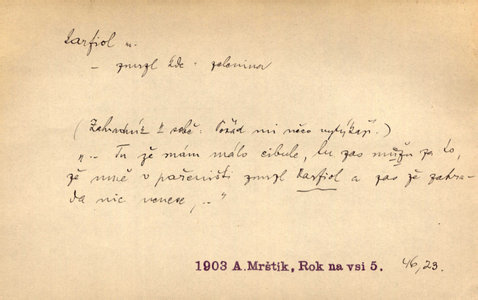 karfiol m.
– zmrzl kde · zelenina
(Zahradník k sobě: Pořád mi něco vytýkají.)
„.. Tu že mám málo cibule, tu zas můžu za to,
že mně v pařeništi zmrzl karfiol a zas že zahra-
da nic nenese, .."
1903 A.Mrštík, Rok na vsi 5. 46,23.